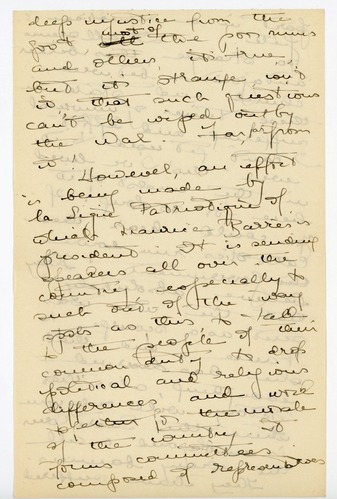 deep injustice from the
govt most of the poor nuns
and others, it's true,
but it's strange isn't
it that such questions
can't be wiped out by
the war. Far from
it! However, an effort
is being made by
la Ligue Patriotique of
which Maurice Barrès is
president. It is sending
speakers all over the
country especially to
such out of the way
spots as this to talk
to the people of their
common duty to drop
political and religious
differences and work
for the morale
of the country. It
forms committees
composed of representatives